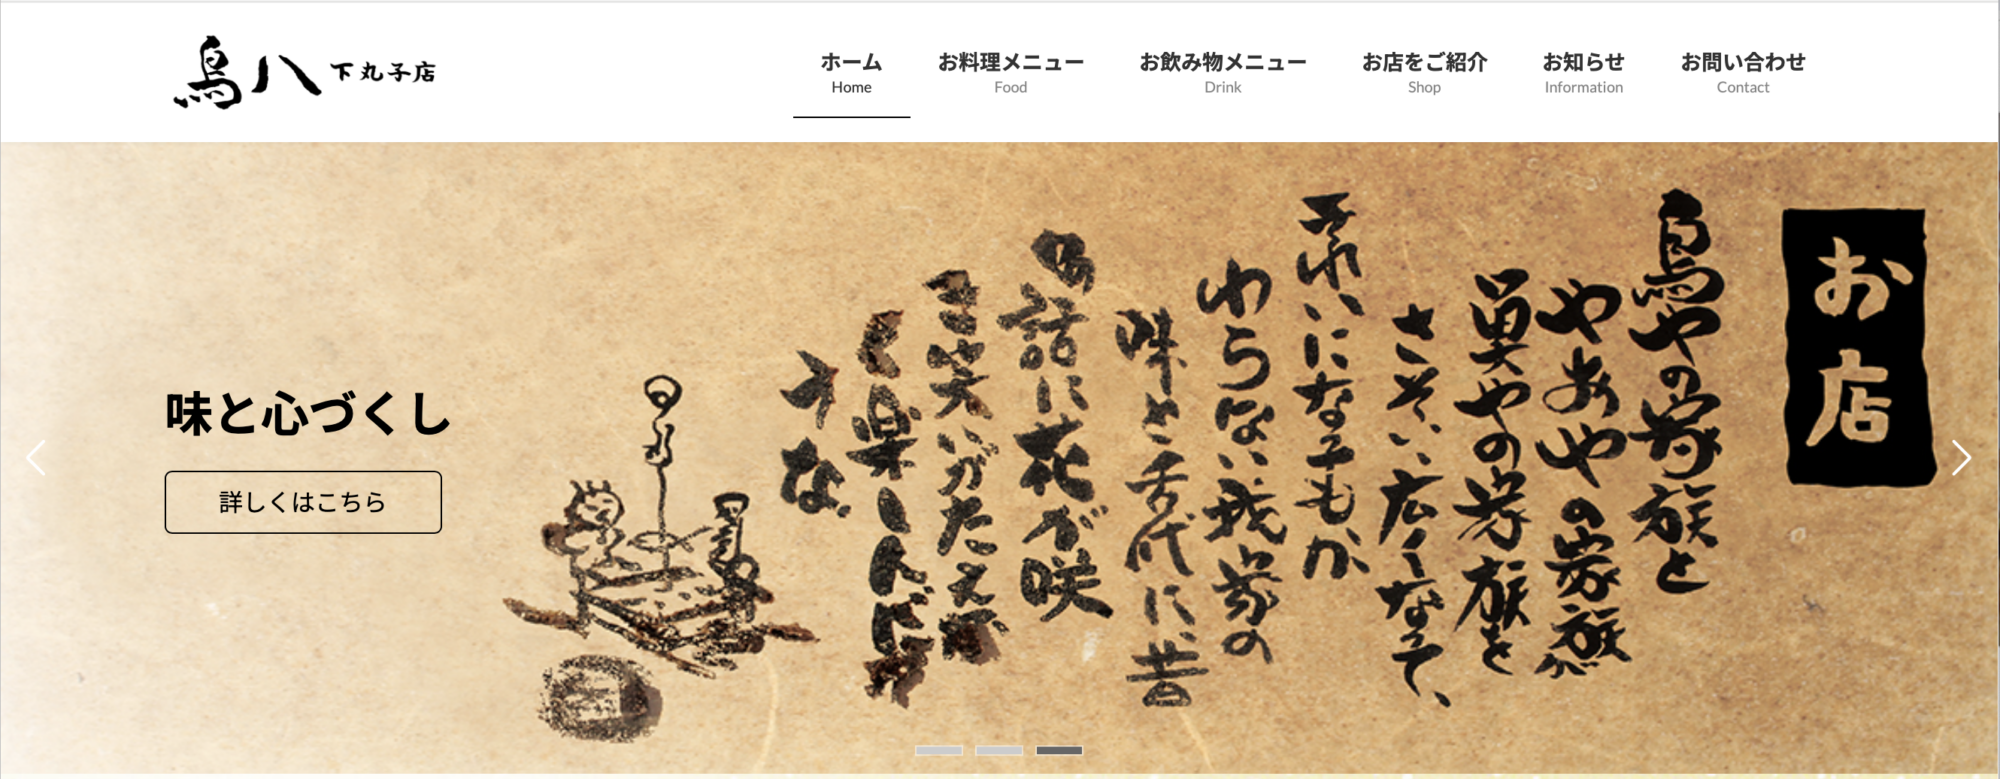 鳥八 下丸子店
ホーム
Home
お料理メニュー
Food
お飲み物メニュー
Drink
お店をご紹介
Shop
お知らせ
Information
お問い合わせ
Contact
お店
鳥やの家族と
やおやの家族が
やの家族を
さそい広くなって、
れいになもか
わらない我家の
味と舌代に、昔
話に花が咲
き笑いがたえ
く楽しんだ
うな
味と心づくし
詳しくはこちら